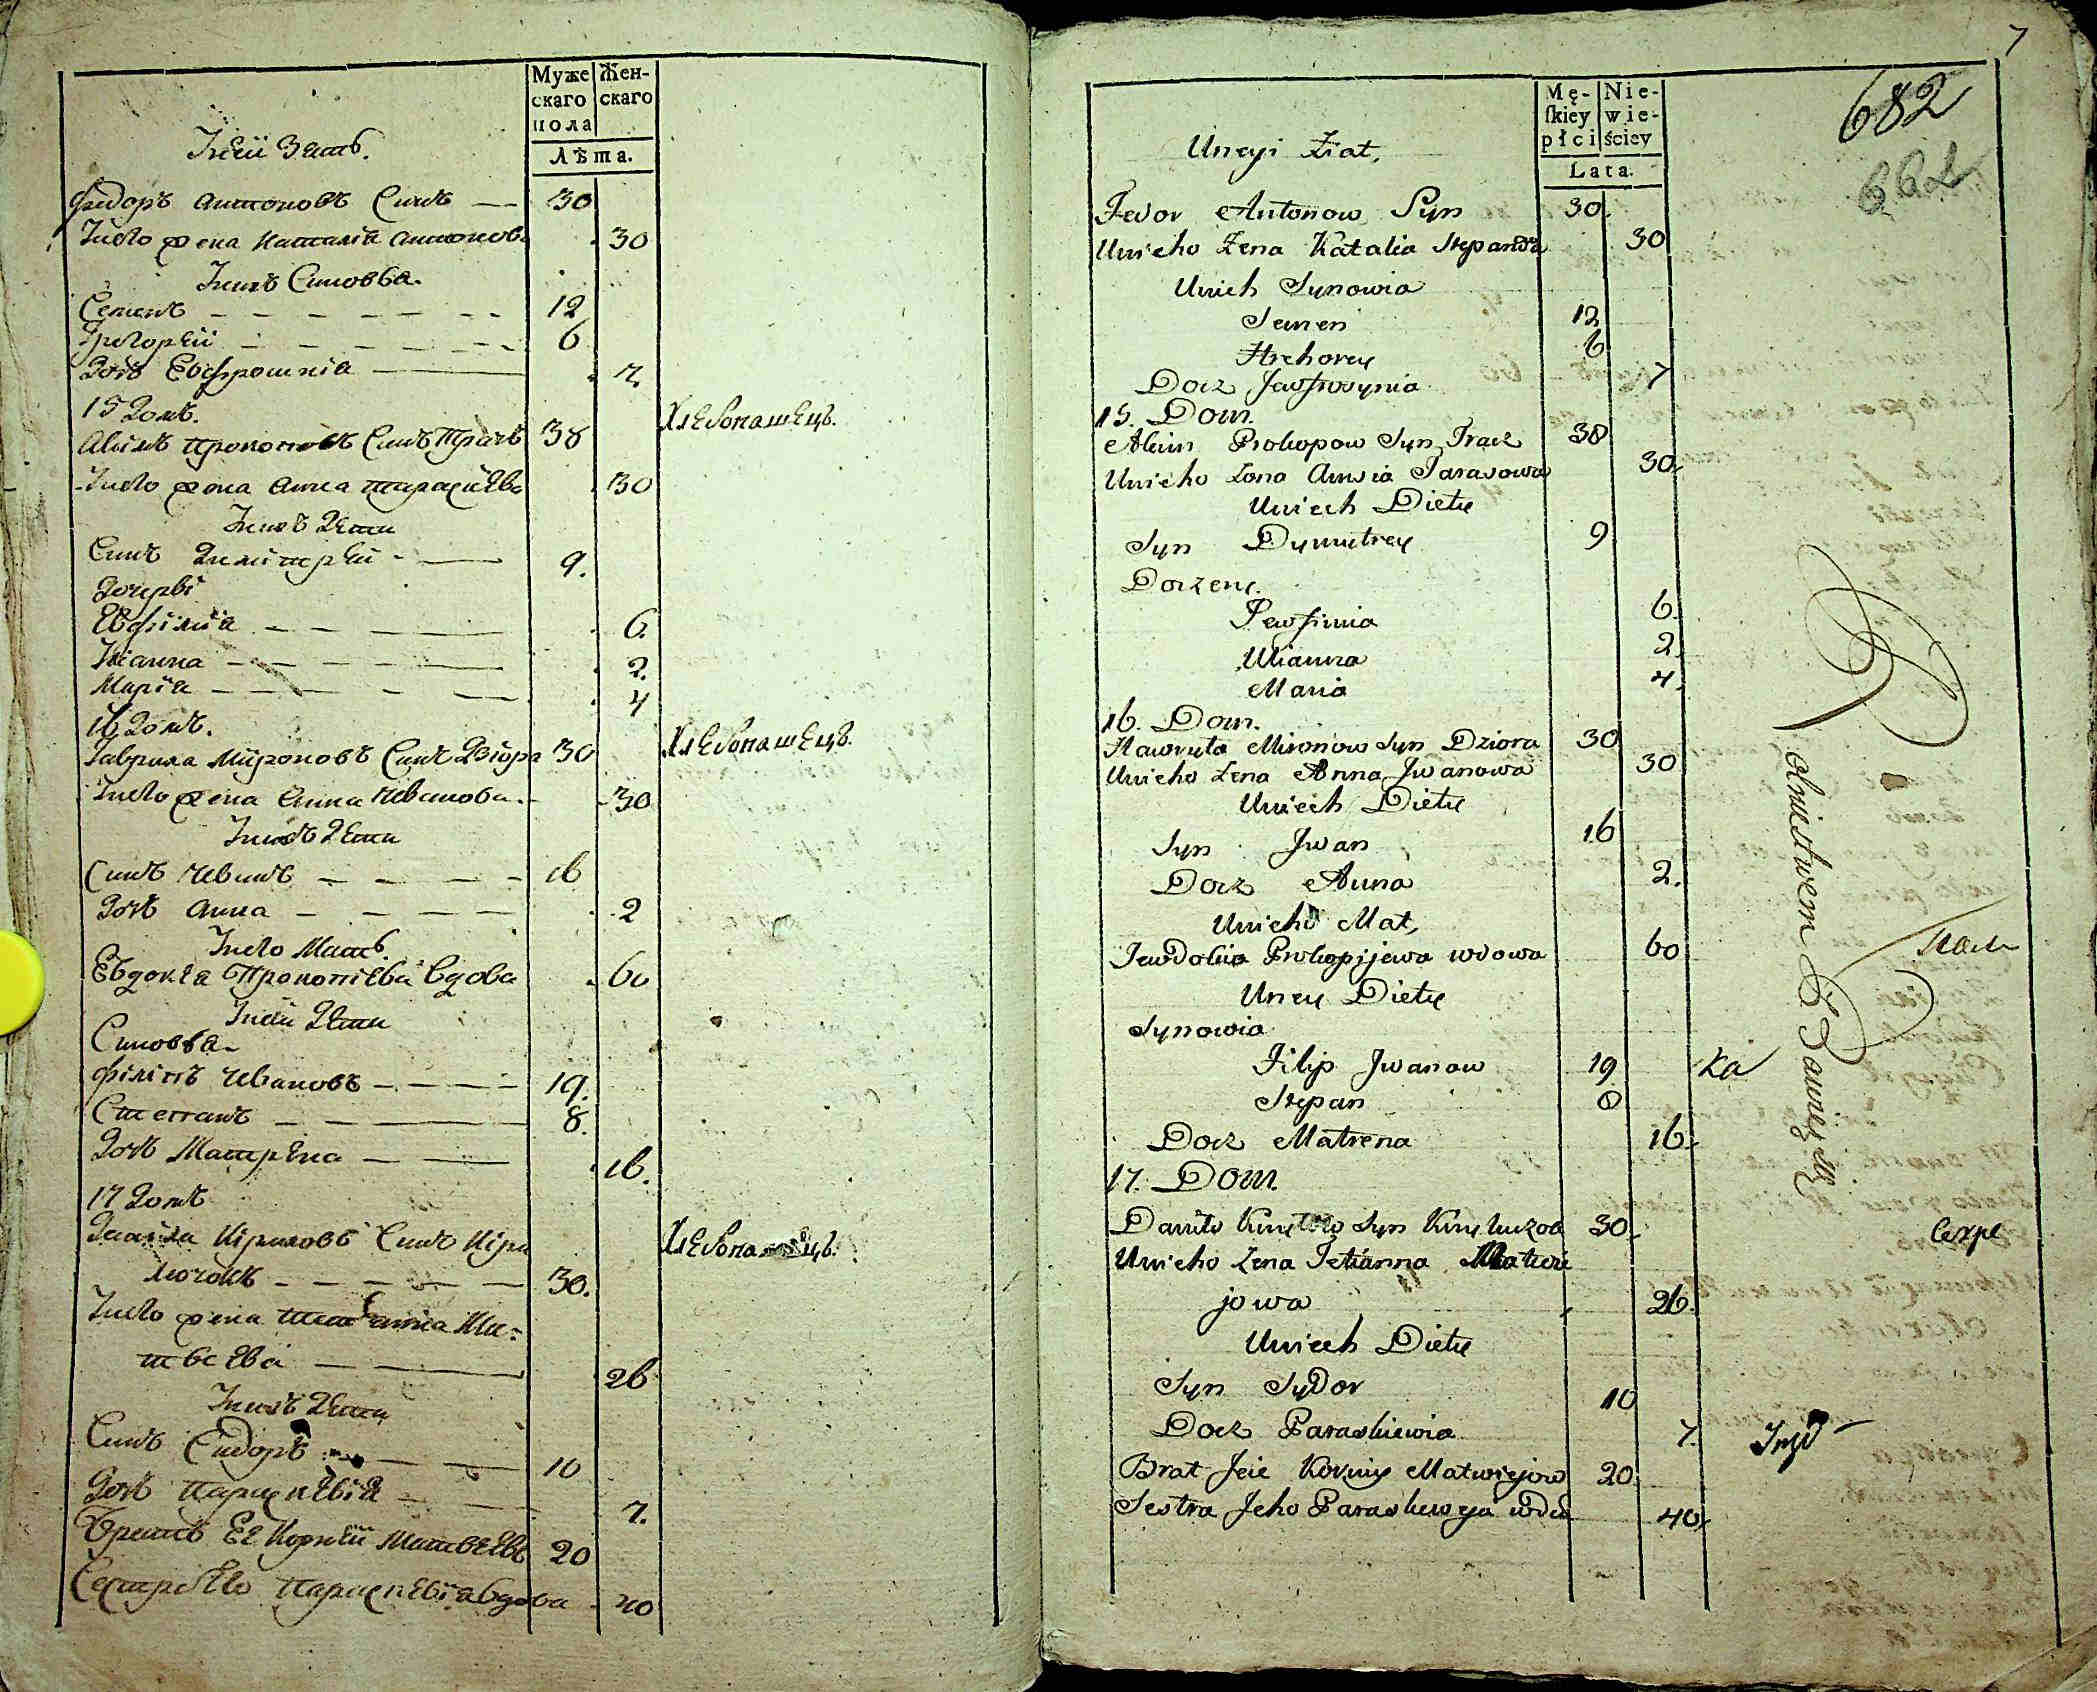 Муже
скаго
пола
Жен-
скаго
Лѣта.
Унеи Зять.
Федоръ Антоновъ Синъ — 30
Унего жена Наталія 30
Унихъ Синовья.
Семенъ 12
Григорей 6
Дочь Евфросинія 7.
15 Домъ.
Акимъ Прокоповъ Синъ Трачъ 38 Хлебопашецъ.
Унего жона Анна Тарасиева 30
Унихъ Дети
Синъ Димитрей 9.
Дочери
Евфимия 6.
Улианна 2.
Мария 4
16 Домъ.
Гаврила Мироновъ Синъ Дзюра 30 Хлебопашецъ.
Унего жена Анна Иванова. 30
Унихъ Дети
Синъ Иванъ 16
Дочь Анна 2
Унего Мать.
Евдокia Прокопиева Вдова 60
Унеи Дети
Синовья.
Филипъ Ивановъ 19.
Степанъ 8.
Дочь Матрена 16.
17 Домъ
Данила Кириловъ Синъ Кири
лючокъ 30. Хлебопашецъ.
Унего жена Тетианна Ма-
твеева 26
Унихъ Дети
Синъ Сидоръ 10
Дочь Параскевия 7.
Братъ Ее Корней Матвеевъ 20
Сестра Его Параскевия вдова 40
7
682
662
Mę-
ſkiey
płci
Nie-
wie-
ściey
Lata.
Uneyi Ziat,
Fedor Antonow Syn 30.
Unieho Zena Natalia Stepanowa 30
Unich Synowia
Semen 12
Hrehorey 6
Docz Jewfrosynia 7
15. Dom.
Akim Prokopow Syn Tracz 38
Unieho Zona Anna Tarasowa 30.
Uniech Diety
Syn Dymitrey 9
Doczery.
Jewfimia 6.
Ulianna 2.
Maria 4.
16. Dom.
Hawryło Mironow Syn Dziora 30
Unieho Zena Anna Jwanowa 30
Uniech Diety
Syn Jwan 16
Docz Anna 2.
Unieho Mat,
Jewdokia Prokopijewa wdowa 60
Uney Diety
Synowia
Filip Jwanow 19 Ka
Stepan 8
Docz Matrena 16.
17. Dom.
Daniło Kiryłow Syn Kiryluczok 30.
Unieho Zena Tetianna Matwie
jowa 26.
Uniech Diety
Syn Sydor 10
Docz Paraskiewia 7.
Brat Jeie Korniy Matwiejow 20.
Sestra Jeho Paraskiewya wdo 40.